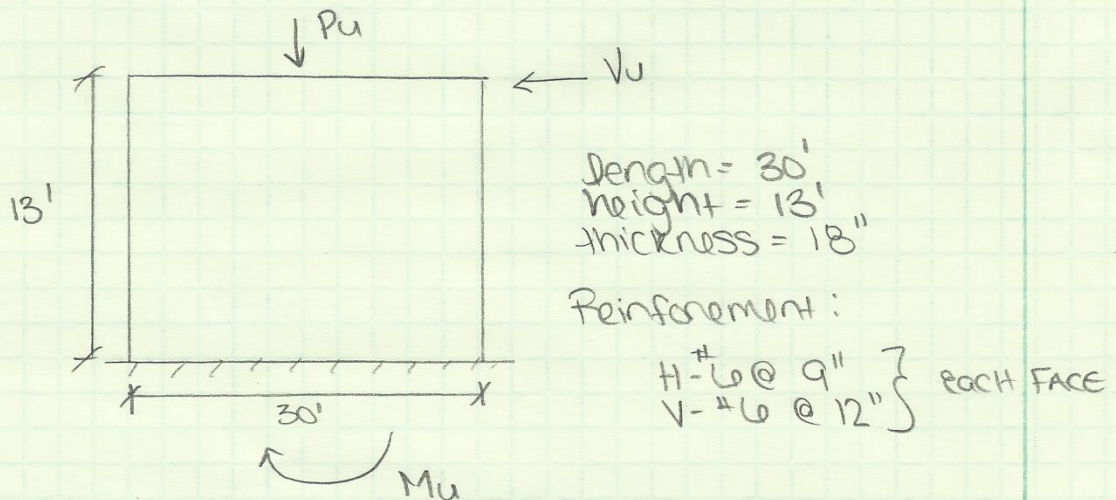 Pu
Vu
13'
30'
Mu
Length = 30'
height = 13'
thickness = 18"
Reinforement :
H-#6 @ 9"
V-#6 @ 12"
EACH FACE